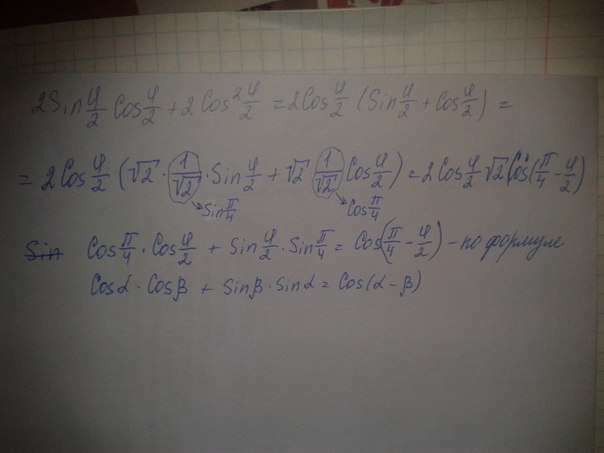 2Sin φ/2 Cos φ/2 + 2Cos² φ/2 = 2Cos φ/2 (Sin φ/2 + Cos φ/2) =
= 2Cos φ/2 (√2 · 1/√2 · Sin φ/2 + √2 1/√2 Cos φ/2) = 2Cos φ/2 √2 Cos(π/4 - φ/2)
Sin π/4 Cos π/4
Sin Cos π/4 · Cos φ/2 + Sin φ/2 · Sin π/4 = Cos(π/4 - φ/2) - по формуле
Cosα · Cosβ + Sinβ · Sinα = Cos(α - β)